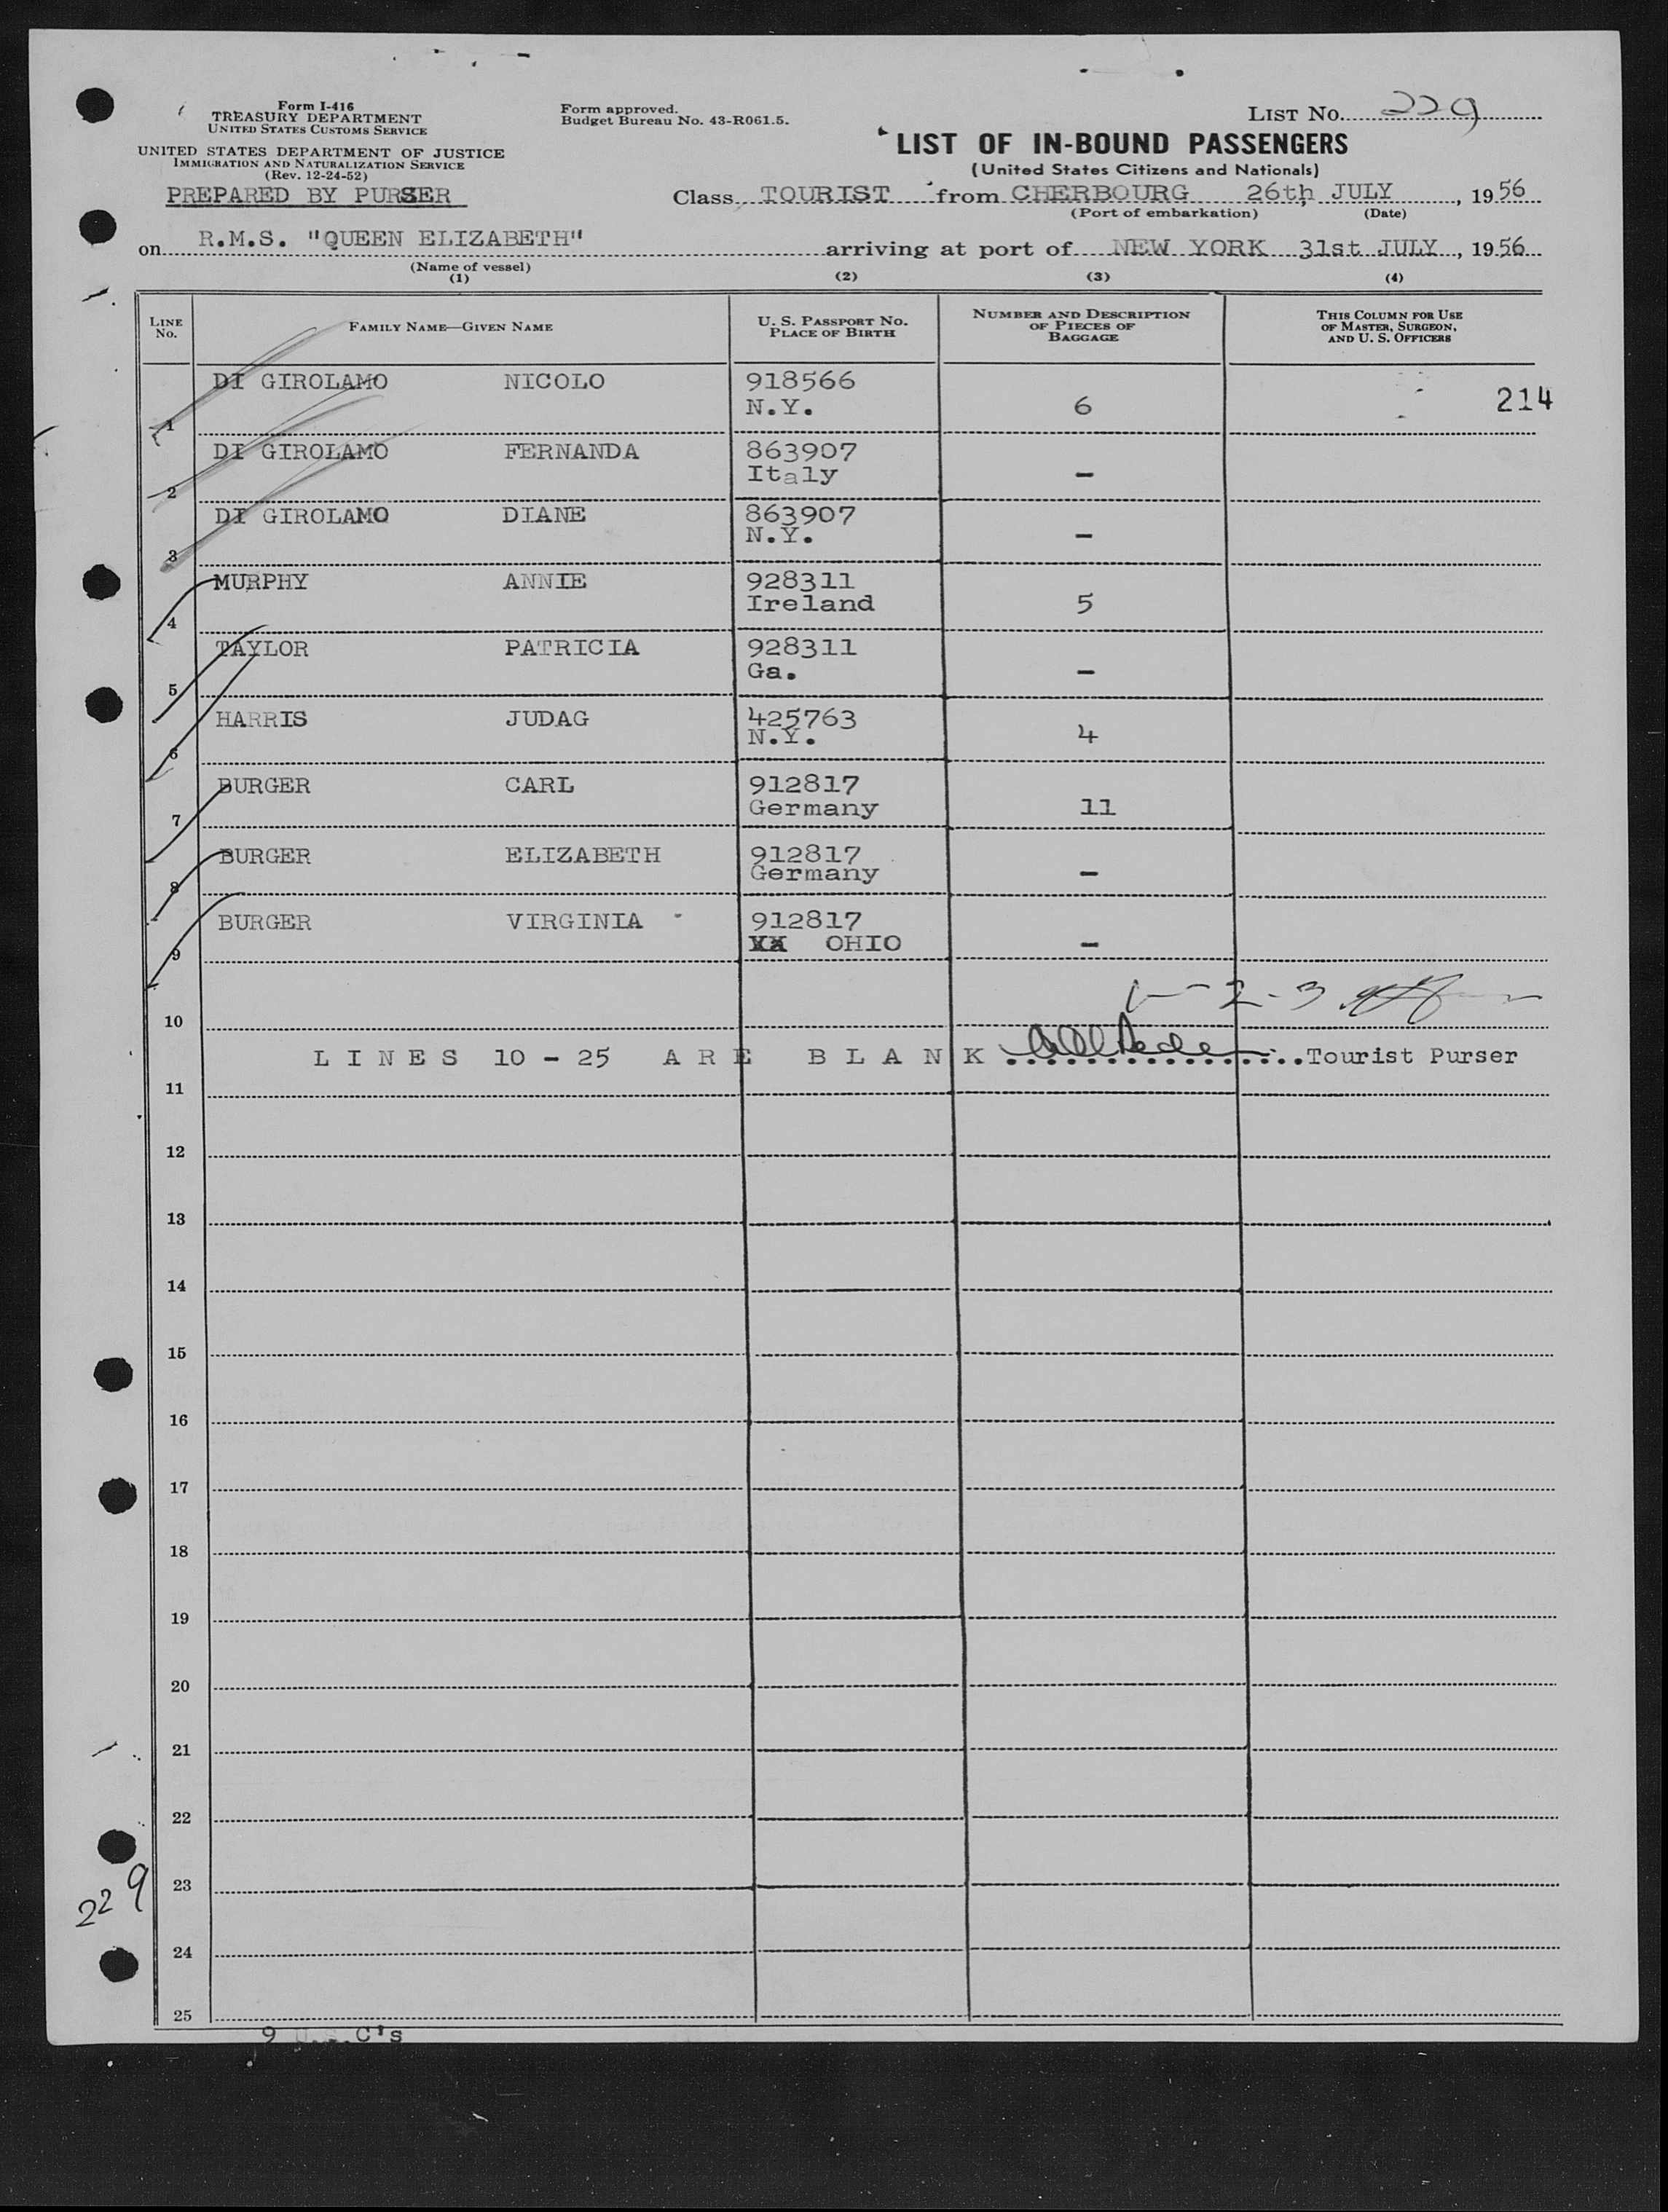 Form I-416
TREASURY DEPARTMENT
UNITED STATES CUSTOMS SERVICE
UNITED STATES DEPARTMENT OF JUSTICE
IMMIGRATION AND NATURALIZATION SERVICE
(Rev. 12-24-52)
PREPARED BY PURSER
Form approved.
Budget Bureau No. 43-R061.5.
LIST No. 229
LIST OF IN-BOUND PASSENGERS
(United States Citizens and Nationals)
Class TOURIST from CHERBOURG 26th JULY, 1956
(Port of embarkation) (Date)
on R.M.S. "QUEEN ELIZABETH" arriving at port of NEW YORK 31st JULY, 1956
(Name of vessel)
(1) (2) (3) (4)
LINE No. FAMILY NAME—GIVEN NAME U. S. PASSPORT NO. PLACE OF BIRTH NUMBER AND DESCRIPTION OF PIECES OF BAGGAGE THIS COLUMN FOR USE OF MASTER, SURGEON, AND U. S. OFFICERS
1 DI GIROLAMO NICOLO 918566 N.Y. 6 214
2 DI GIROLAMO FERNANDA 863907 Italy -
3 DI GIROLAMO DIANE 863907 N.Y. -
4 MURPHY ANNIE 928311 Ireland 5
5 TAYLOR PATRICIA 928311 Ga. -
6 HARRIS JUDAG 425763 N.Y. 4
7 BURGER CARL 912817 Germany 11
8 BURGER ELIZABETH 912817 Germany -
9 BURGER VIRGINIA 912817 OHIO -
1-2-3
10
LINES 10 - 25 ARE BLANK Tourist Purser
11
12
13
14
15
16
17
18
19
20
21
22
23
229
24
25
9 U.S.C's